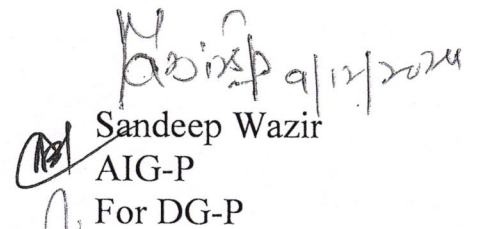 9/12/2024
Sandeep Wazir
AIG-P
For DG-P